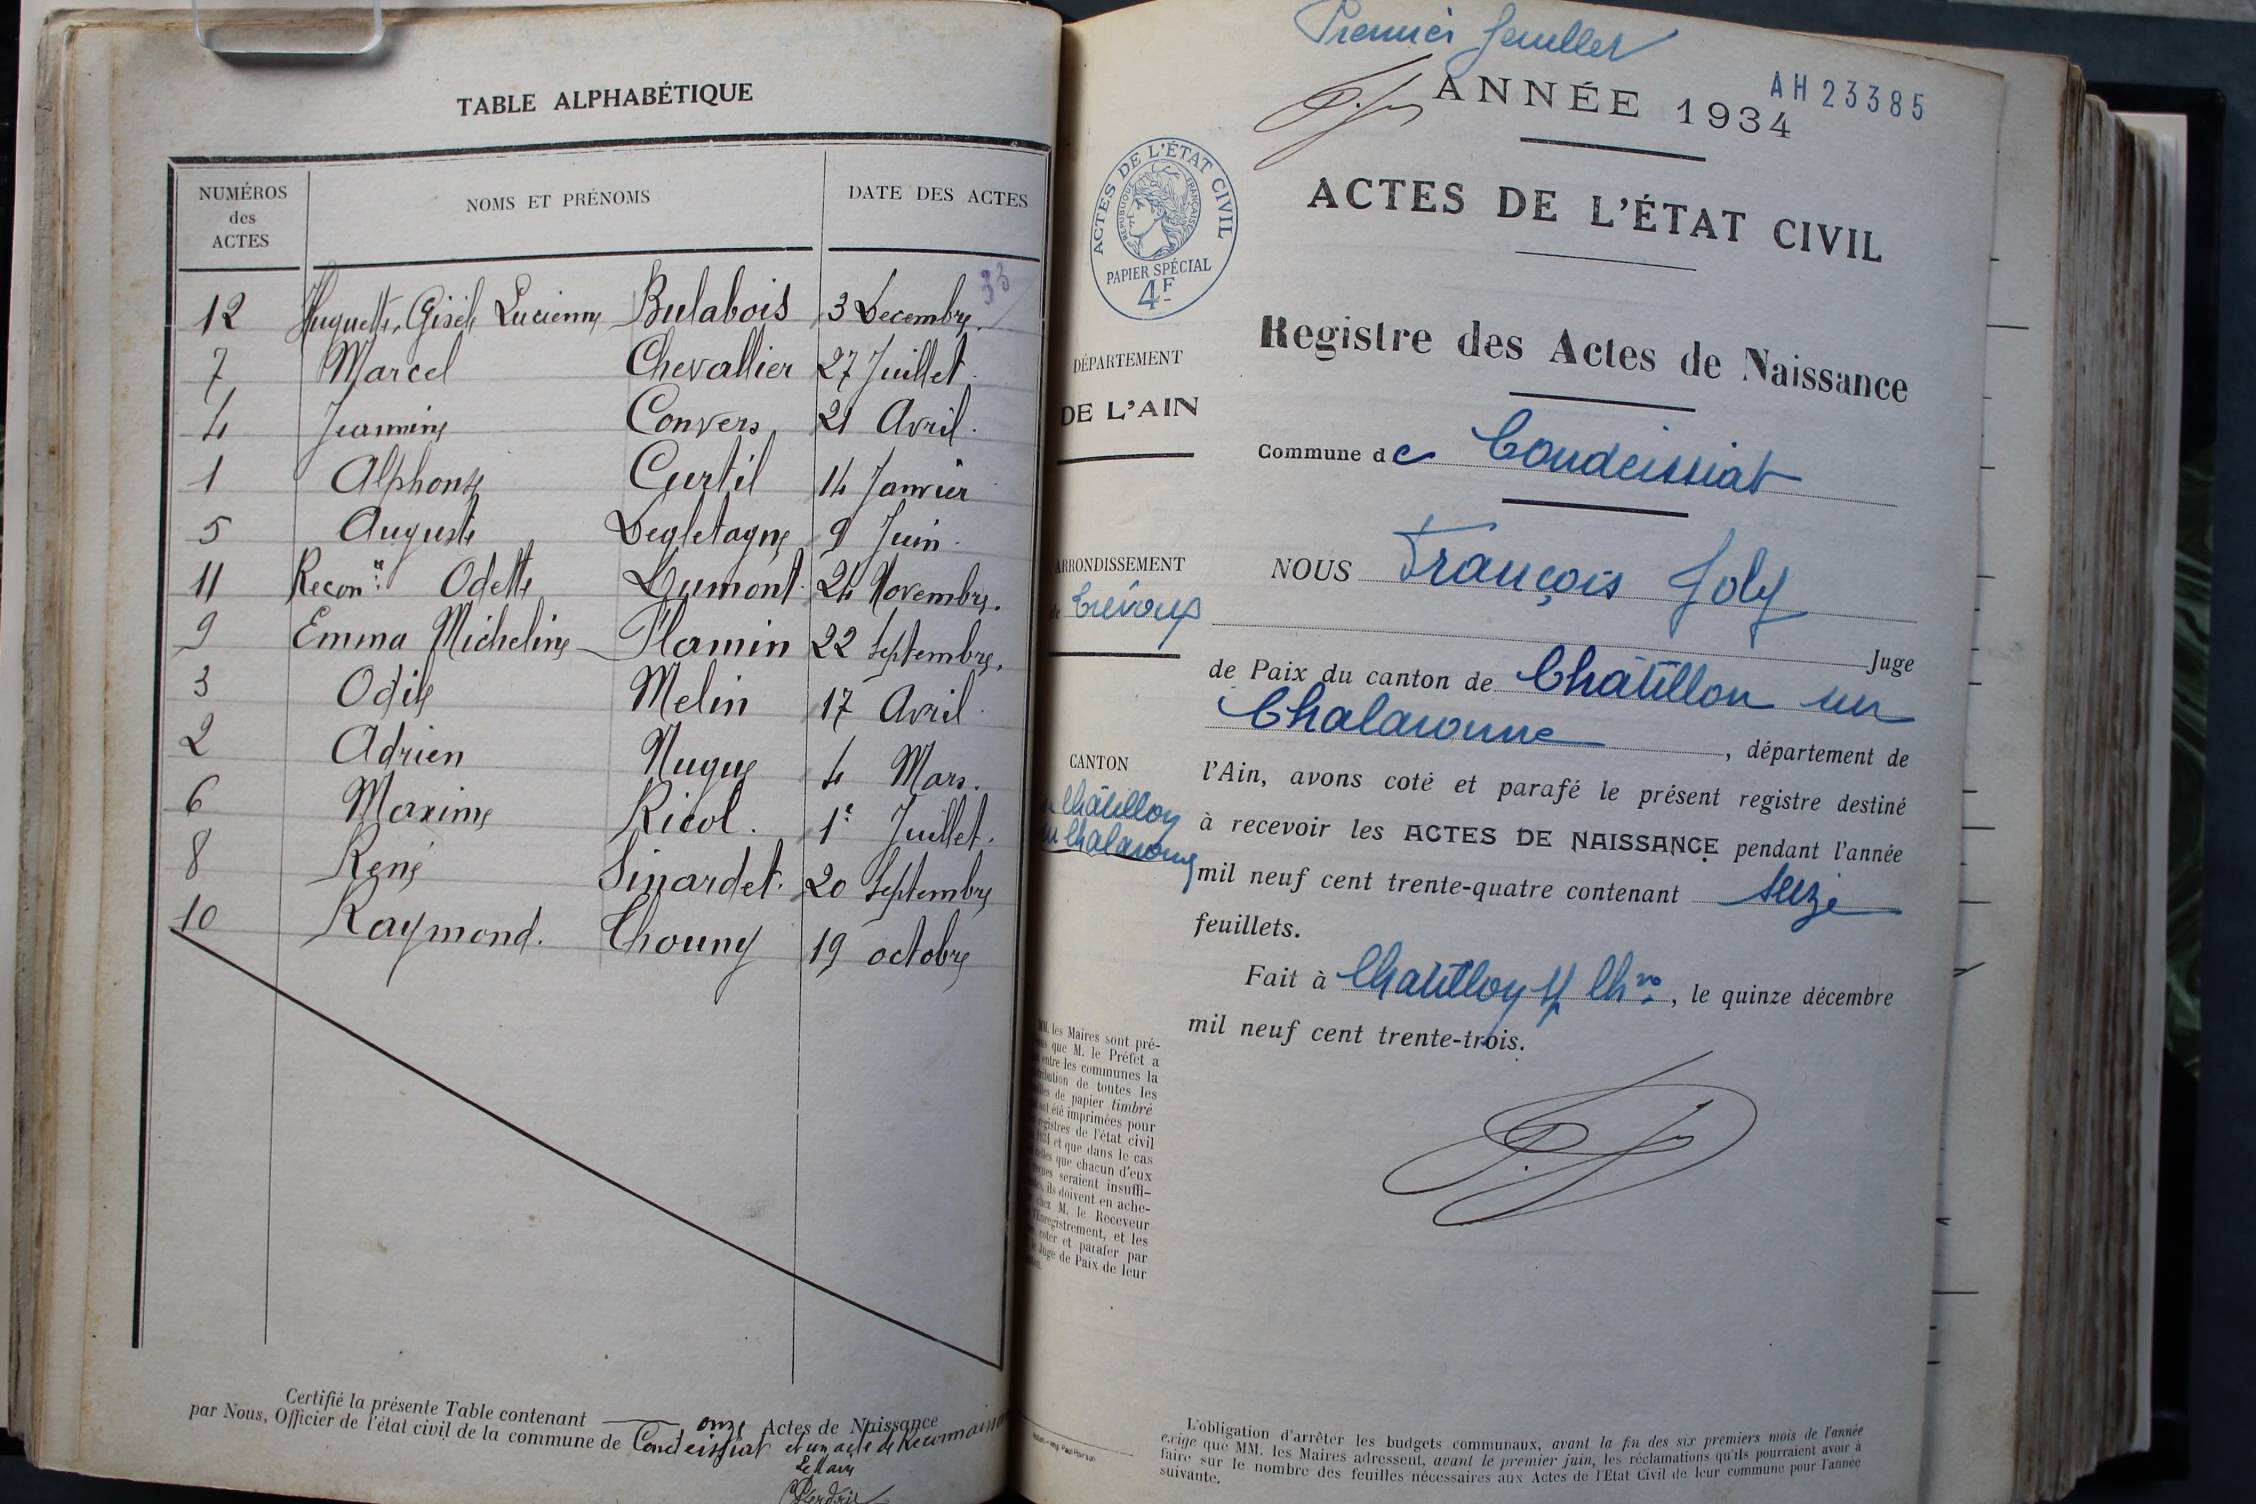 TABLE ALPHABÉTIQUE
NUMÉROS des ACTES NOMS ET PRÉNOMS DATE DES ACTES
12 Huguette, Gisèle Lucienne Bulabois 3 Decembre. 33
7 Marcel Chevallier 27 Juillet.
4 Jeannine Convers 21 Avril.
1 Alphonse Curtil 14 Janvier
5 Auguste Degletagne 9 Juin.
11 Recon.ce Odette Dumont. 24 Novembre.
9 Emma Micheline Flamin 22 Septembre.
3 Odile Melin 17 Avril
2 Adrien Nugue 4 Mars.
6 Maxime Ricol. 1e Juillet.
8 René Sinardet. 20 Septembre
10 Raymond. Thouny 19 octobre
Certifié la présente Table contenant onze Actes de Naissance
par Nous, Officier de l'état civil de la commune de Condeissiat et un acte de
Le Maire
Premier feuillet
ANNÉE 1934
AH23385
ACTES DE L'ÉTAT CIVIL
RÉPUBLIQUE FRANÇAISE
PAPIER SPÉCIAL
4F
ACTES DE L'ÉTAT CIVIL
Registre des Actes de Naissance
DÉPARTEMENT
DE L'AIN
Commune de Condeissiat
ARRONDISSEMENT
de Trévoux
NOUS François Joly
Juge
de Paix du canton de Châtillon sur
Chalaronne, département de
CANTON
Châtillon
Chalaronne
l'Ain, avons coté et parafé le présent registre destiné
à recevoir les ACTES DE NAISSANCE pendant l'année
mil neuf cent trente-quatre contenant seize
feuillets.
Fait à Chatillon s/ Chne, le quinze décembre
mil neuf cent trente-trois.
MM. les Maires sont pré-
que M. le Préfet a
entre les communes la
de toutes les
de papier timbré
ont été imprimées pour
registres de l'état civil
et que dans le cas
que chacun d'eux
seraient insuffi-
ils doivent en ache-
chez M. le Receveur
l'Enregistrement, et les
coter et parafer par
Juge de Paix de leur
L'obligation d'arrêter les budgets communaux, avant la fin des six premiers mois de l'année
exige que MM. les Maires adressent, avant le premier juin, les réclamations qu'ils pourraient avoir à
faire sur le nombre des feuilles nécessaires aux Actes de l'Etat Civil de leur commune pour l'année
suivante.